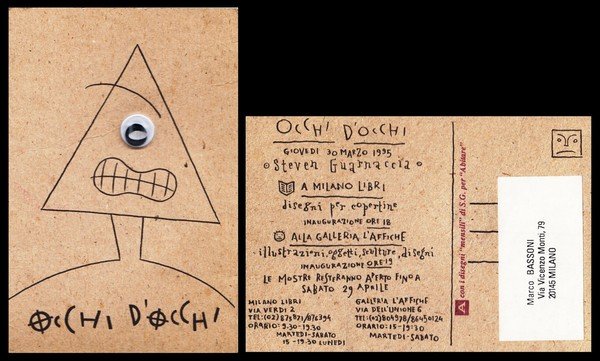 OCCHI D'OCCHI
OCCHI D'OCCHI
GIOVEDI 30 MARZO 1995
Steven Guarnaccia
A MILANO LIBRI
disegni per copertine
INAUGURAZIONE ORE 18
ALLA GALLERIA L'AFFICHE
illustrazioni, oggetti, sculture, disegni
INAUGURAZIONE ORE 19
LE MOSTRE RESTERANNO APERTO FINO A
SABATO 29 APRILE
MILANO LIBRI
VIA VERDI 2
TEL:(02)875871/876394
ORARIO: 9.30-19.30
MARTEDI-SABATO
15-19.30 LUNEDI
GALLERIA L'AFFICHE
VIA DELL'UNIONE 6
TEL:(02)804978/86450124
ORARIO: 15-19:30
MARTEDI-SABATO
A con i disegni "mensili" di S.G. per "Abitare"
Marco BASSONI
Via Vicenzo Monti, 79
20145 MILANO